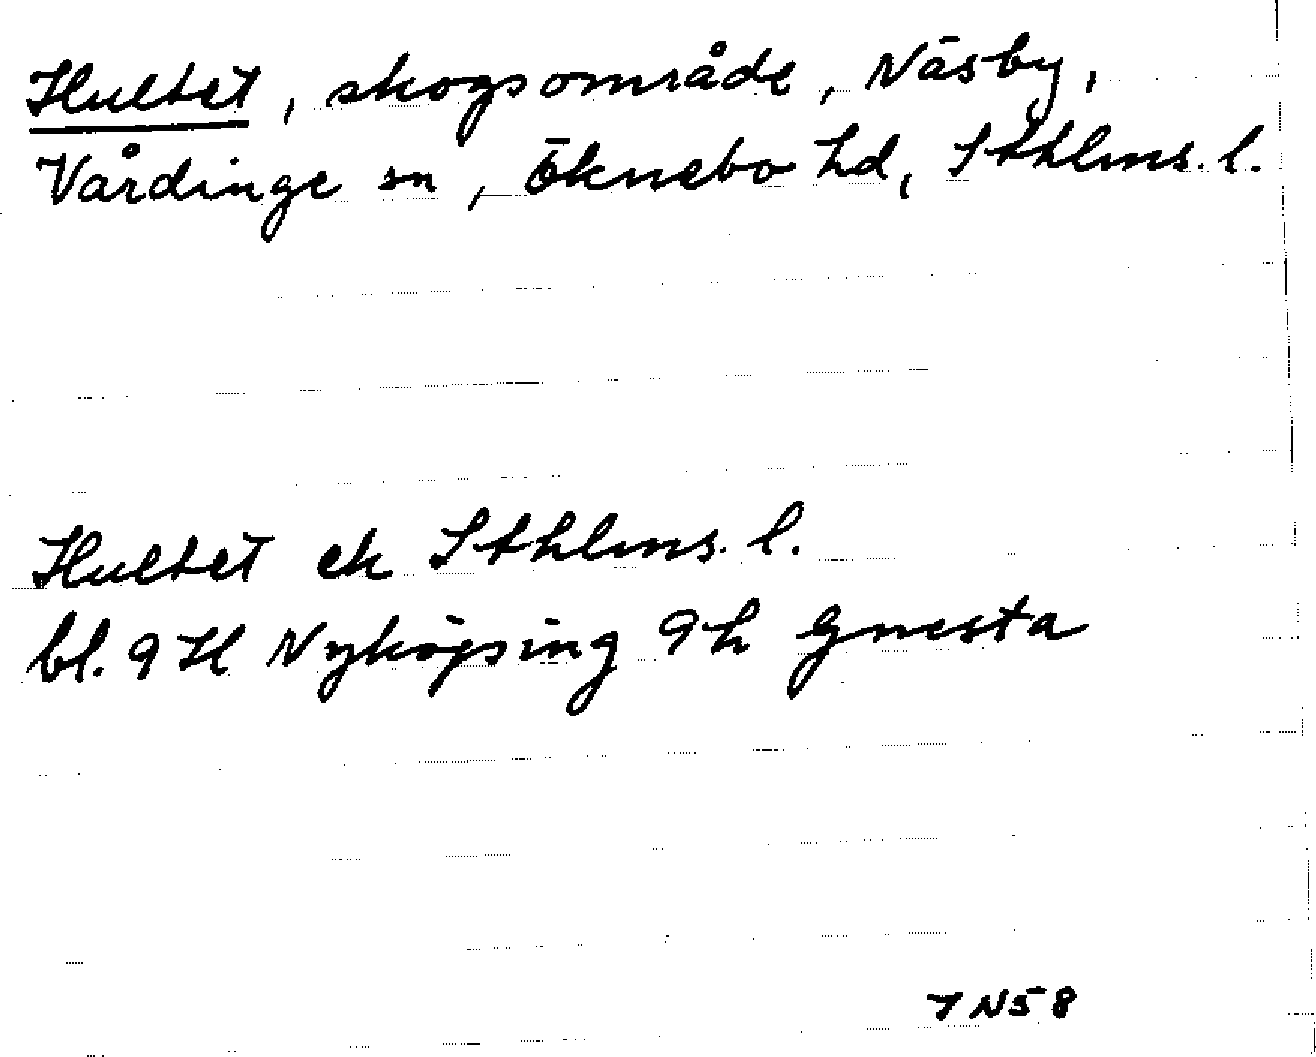 Hultet, skogsområde, Näsby,
Vårdinge sn, Öknebo hd, Sthlms. l.
Hultet ek Sthlms. l.
bl. 9H Nyköping 9h Gnesta
7N58